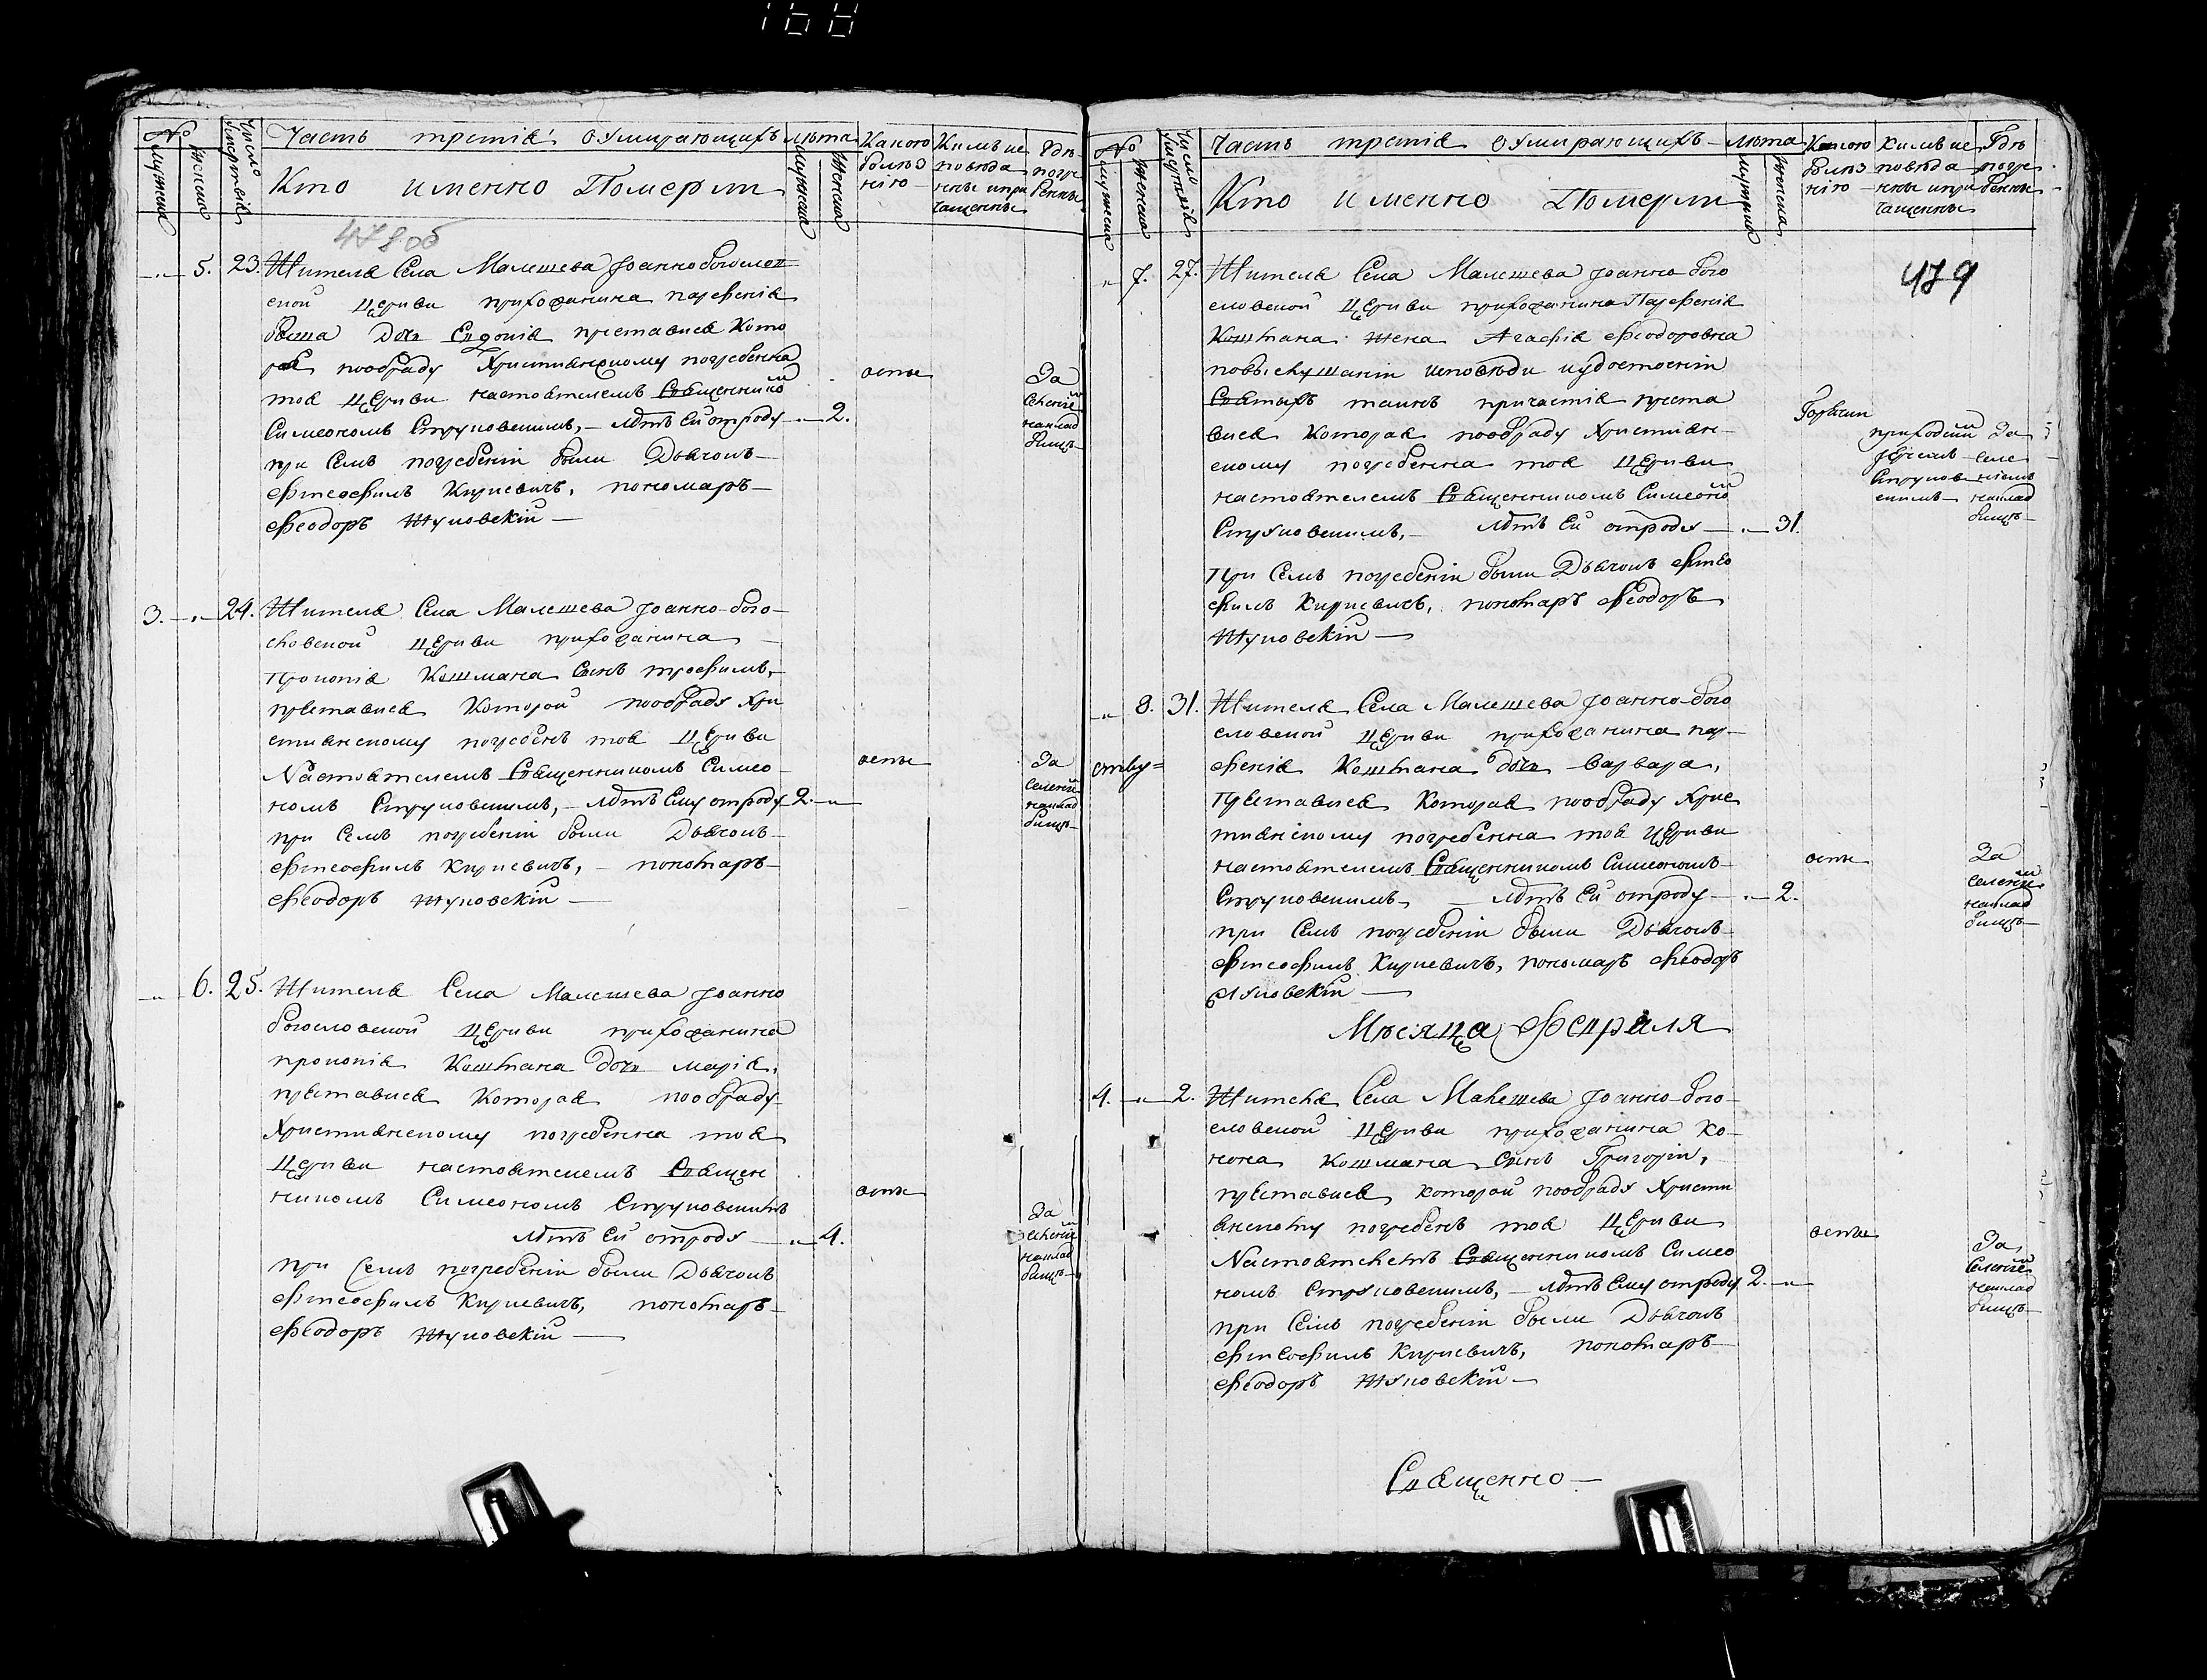 168
№
мужеска
женска
Число смертей
Часть третіа о умирающихъ
Кто именно Померли
лѣта
мужеска
женска
Какою болѣзнію
Кимъ исповѣданы и причащенны
Гдѣ погребенны
478 об
5. 23. Жителя Села Малешева Іоанно богослов
ской Церкви прихожанина парфенія
Дочь Евдокія преставися кото
рая пообряду Христианскому погребенна
тоя Церкви настоятелемъ Священнико
Симеономъ Струковскимъ, – лѣтъ Ей отроду – 2.
при Семъ погребеніи были Дьячокъ
Фтеофилъ Кирневичъ, пономаръ
Феодоръ Жуковскій
оспы
За селеніе на клад бищѣ
3. 24. Жителя Села Малешева Іоанно-бого
словской церкви прихожанина
Прокопія Кошмана Сынъ трофимъ,
преставися Которой пообряду Хри
стианскому погребенъ тоя Церкви
Настоятелемъ Священникомъ Симео
номъ Струковскимъ, – лѣтъ Ему отроду 2.
при Семъ погребеніи были Дьячокъ
Фтеофилъ Кирневичъ, – пономаръ
Феодоръ Жуковскій
оспы
За селеніе на клад бищѣ
6. 25. Жителя Села Малешева Іоанно
богословской Церкви прихожанина
прокопія Кошмана дочь Марія,
преставися Которая пообряду
Христианскому погребенна тоя
Церкви настоятелемъ Священ
никомъ Симеономъ Струковскимъ
лѣтъ Ей отроду – 4.
при Семъ погребеніи были Дьячокъ
Фтеофилъ Кирневичъ, пономаръ
Феодоръ Жуковскій
оспы
За селеніе на клад бищѣ
№
мужеска
женска
Число смертей
Часть третіа о умирающихъ
Кто именно Померли
лѣта
мужеска
женска
Какою болѣзнію
Кимъ исповѣданы и причащенны
Гдѣ погребенны
479
7. 27. Жителя Села Малешева Іоанно бого
словской Церкви прихожанина Парфенія
Кошмана жена Агафія Феодоровна
по выслушаніи исповѣди и удостоеніи
Святыхъ таинъ причастія преста
вися Которая пообряду Христиан
скому погребенна тоя Церкви
настоятелемъ Священникомъ Симеоно
Струковскимъ, – лѣтъ Ей отроду – 31.
При Семъ погребеніи были Дьячокъ Фтео
филъ Кирневичъ, пономаръ Феодоръ
Жуковскій
приходскимъ Іереемъ Струковскимъ
За селеніемъ на клад бищѣ
8. 31. Жителя Села Малешева Іоанно-бого
словской Церкви прихожанина пар
фенія Кошмана дочь Варвара,
Преставися Которая пообряду Хрис
тианскому погребенна тоя Церкви
настоятелемъ Священникомъ Симеономъ
Струковскимъ – лѣтъ Ей отроду – 2.
при Семъ погребеніи были Дьячокъ
Фтеофилъ Кирневичъ, пономаръ Феодоръ
Жуковскій
оспы
За селеніе на клад бищѣ
Мѣсяца Февраля
4. 2. Жителя Села Малешева Іоанно-бого
словской Церкви прихожанина Ко
нона Кошмана Сынъ Григорій,
преставися которой пообряду Христи
анскому погребенъ тоя Церкви
Настоятелемъ Священникомъ Симео
номъ Струковскимъ, – лѣтъ Ему отроду 2.
при Семъ погребеніи были Дьячокъ
Фтеофилъ Кирневичъ, пономаръ
Феодоръ Жуковскій
оспы
За селеніе на клад бищѣ
Священно